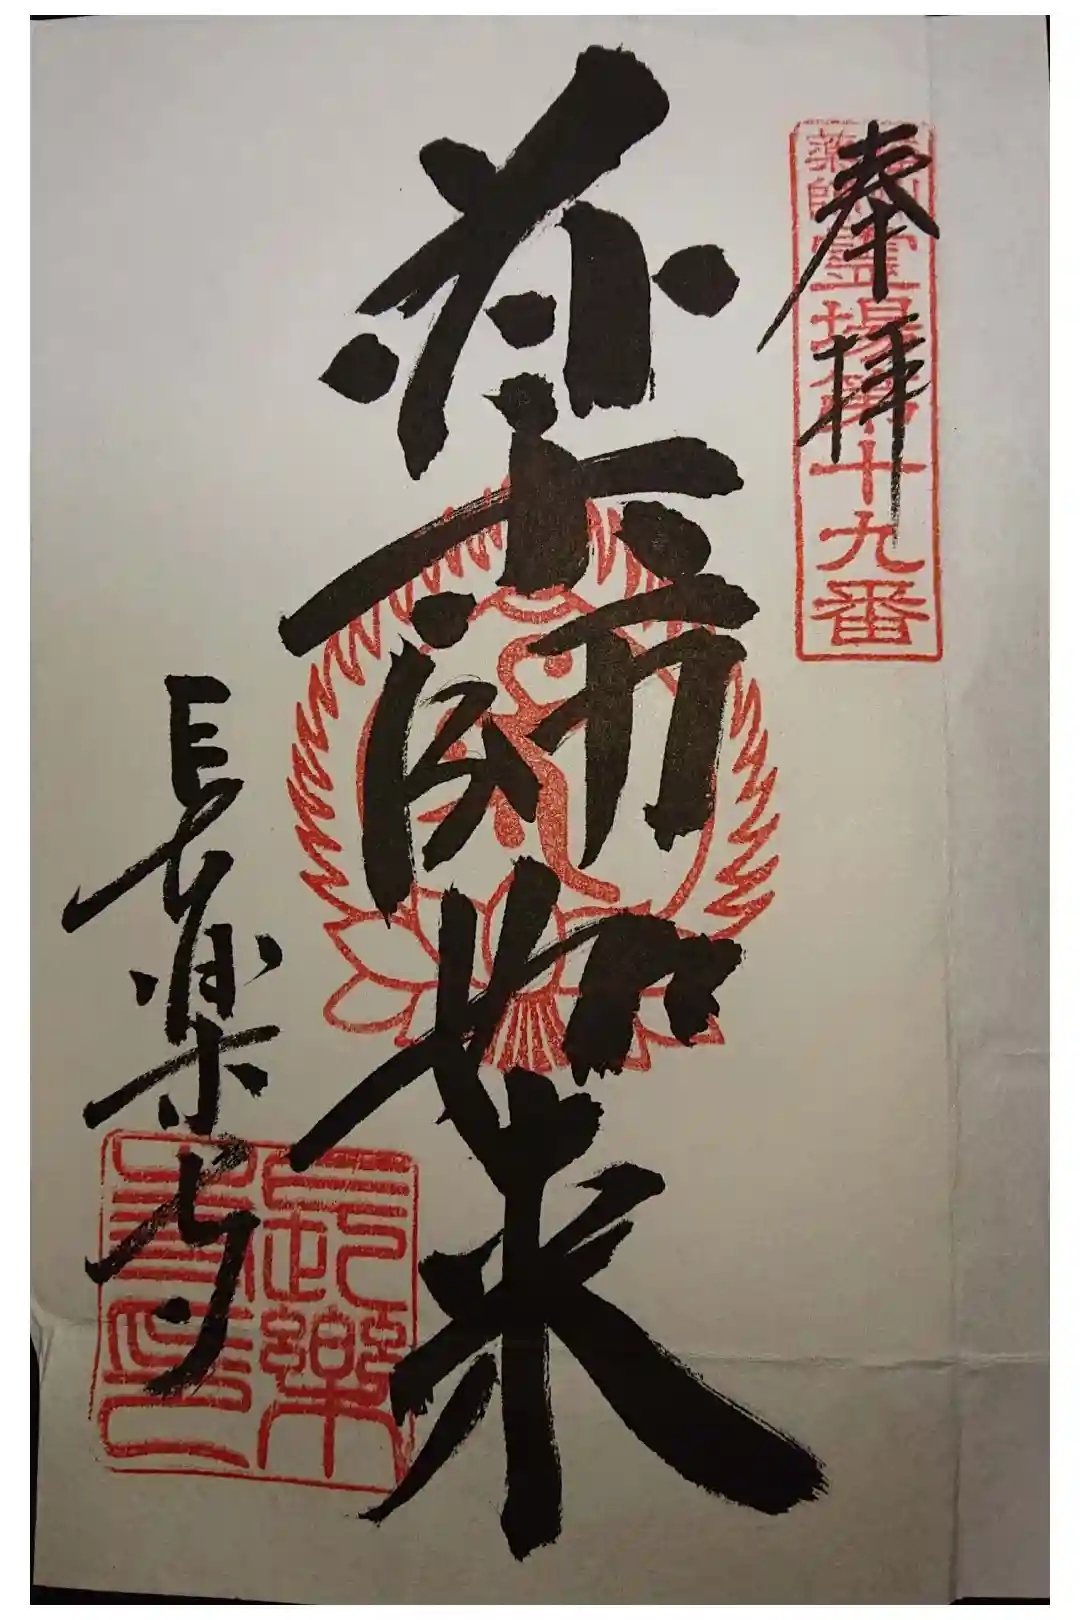 奉拝
薬師霊場第十九番
薬師如来
長楽寺
長楽寺印